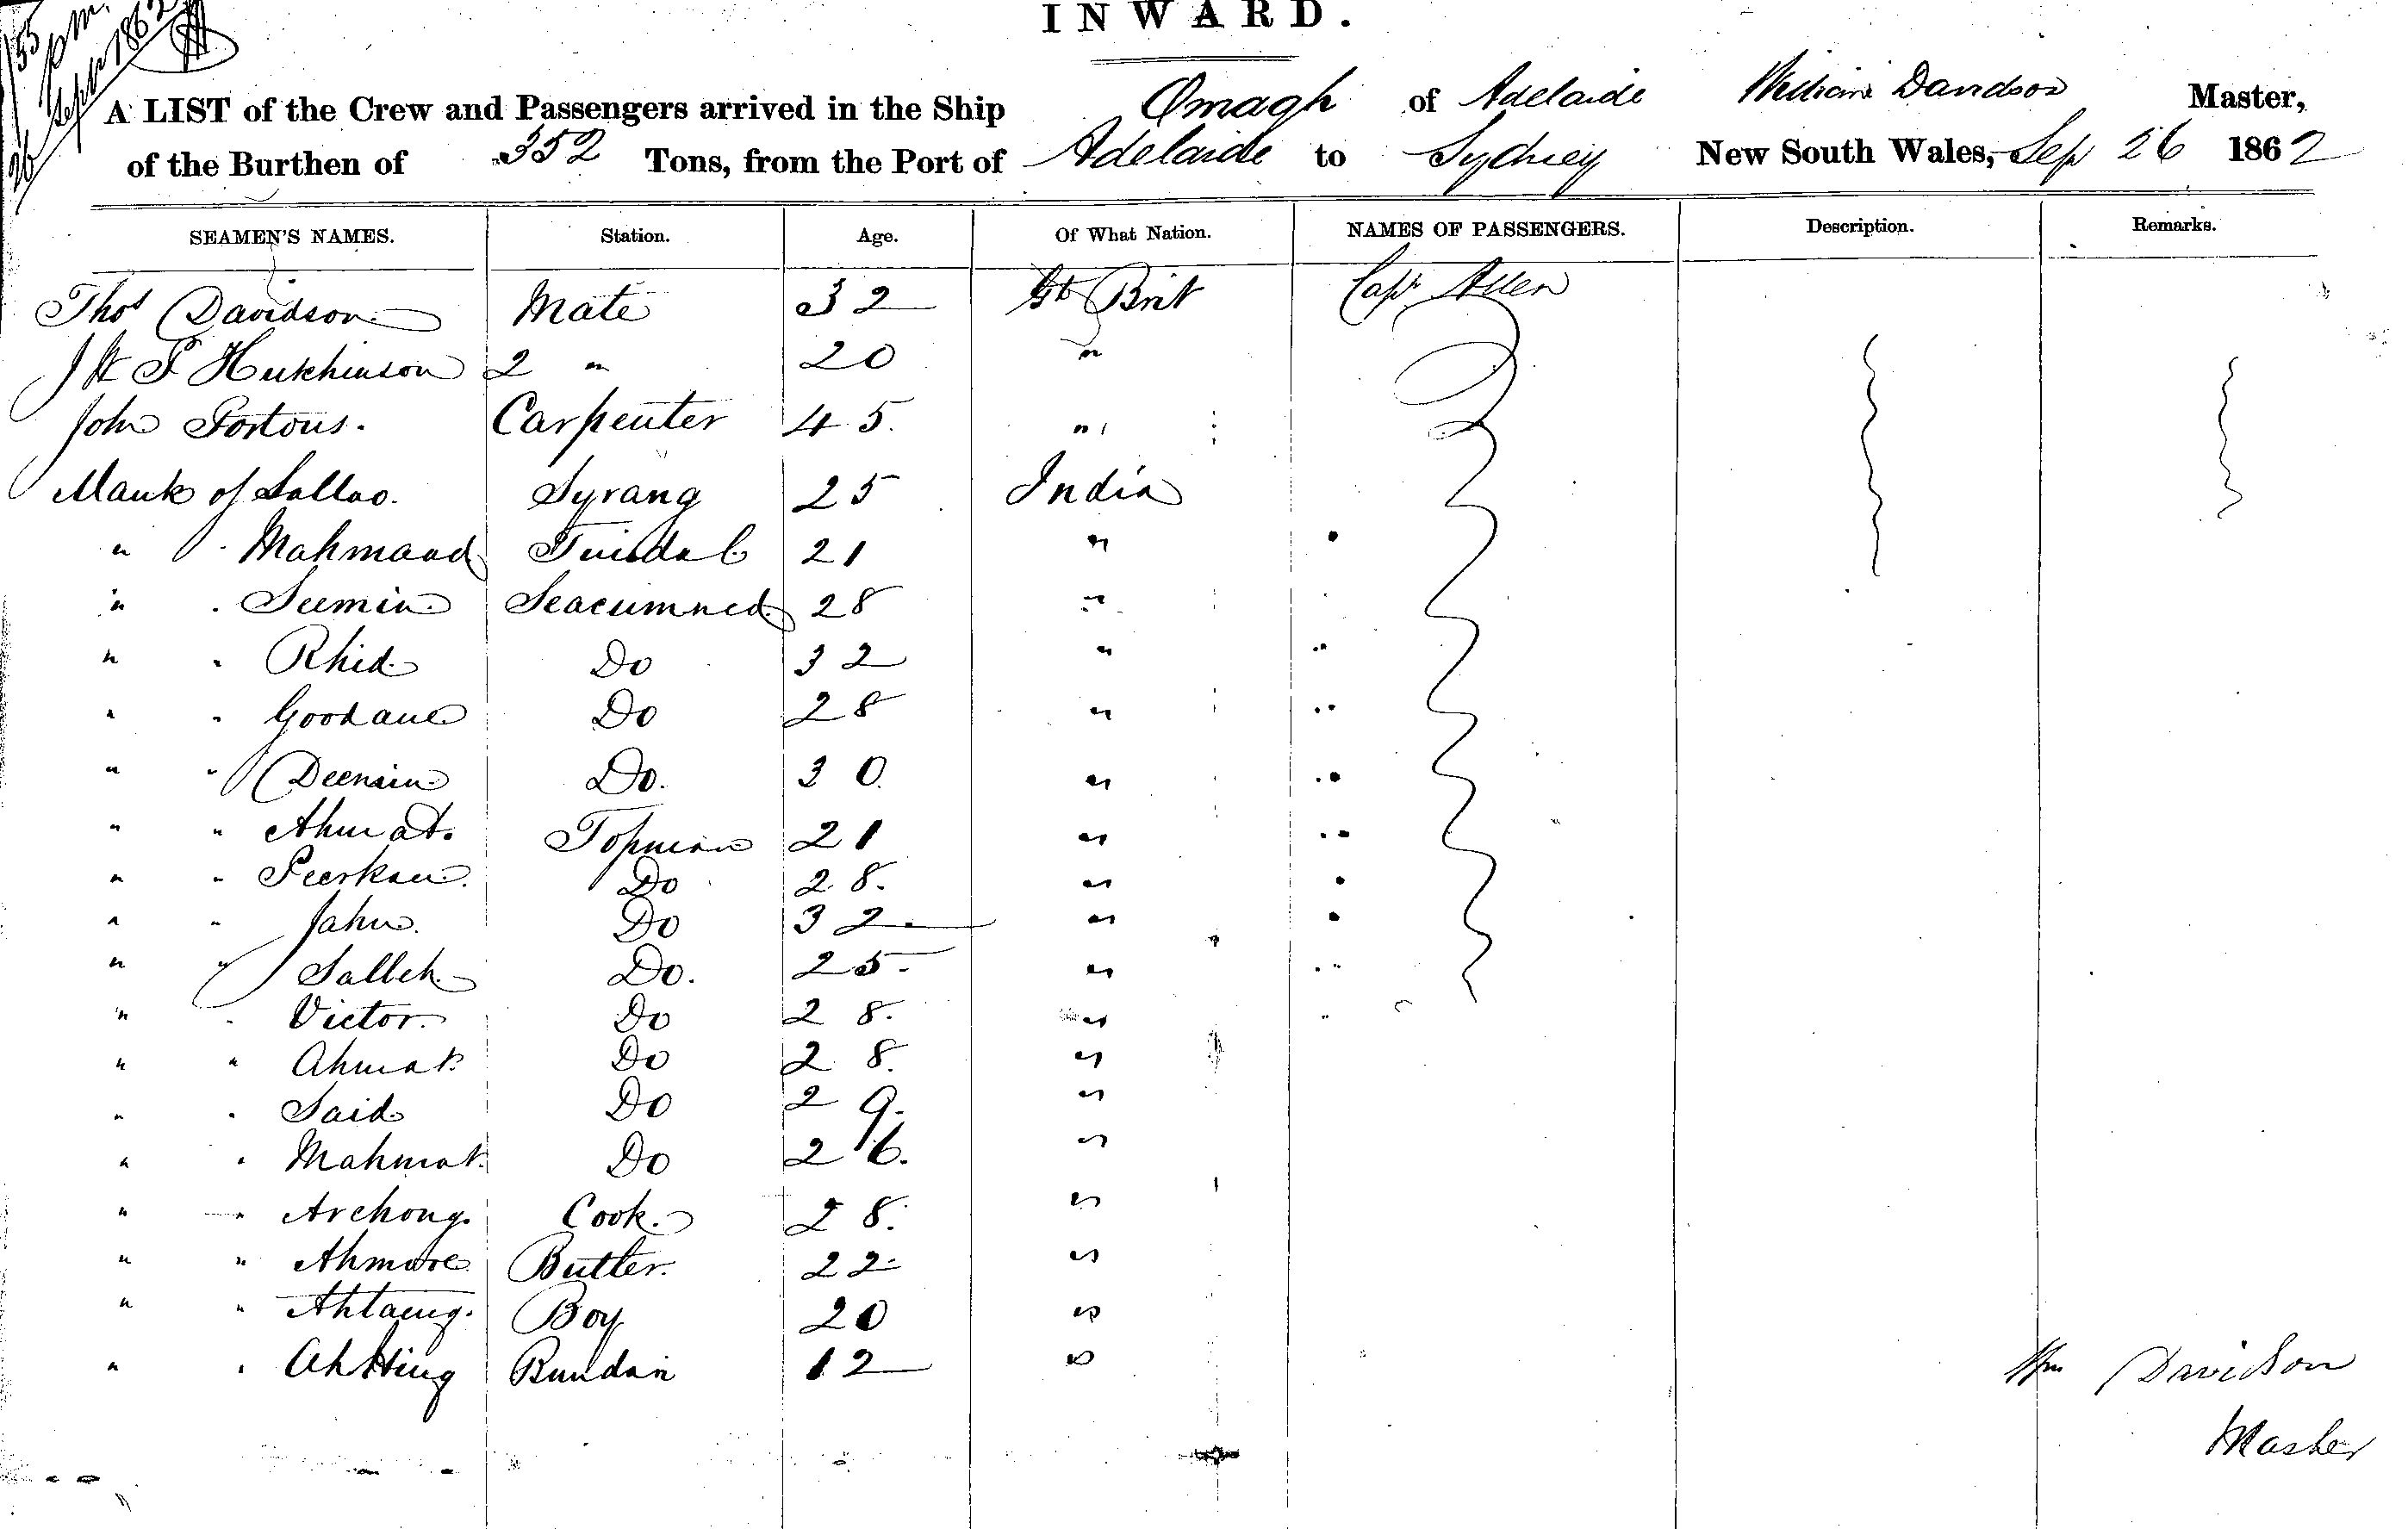 INWARD.
26 Sepr 1862
A LIST of the Crew and Passengers arrived in the Ship Omagh of Adelaide William Davidson Master,
of the Burthen of 352 Tons, from the Port of Adelaide to Sydney New South Wales, Sep 26 1862
SEAMEN'S NAMES. Station. Age. Of What Nation. NAMES OF PASSENGERS. Description. Remarks.
Thos Davidson Mate 32 Gt Brit Capt Allen
Hutchinson 2 " 20 "
John Portous. Carpenter 45. "
Mauk of Sallao. Syrang 25 India
" " Mahmaad Tuisdal 21 "
" " Seemin. Seacunned. 28 "
" " Rhid. Do 32 "
" " Goodaue Do 28 "
" " Deensin Do. 30. "
" " Ahmat. Topman 21 "
" " Peerkau. Do 28. "
" " Jahn. Do 32 "
" " Salleh. Do. 25. "
" " Victor. Do 28. "
" " Ahmat. Do 28. "
" " Said Do 29. "
" " Mahmat. Do 26. "
" " Archong. Cook. 28. "
" " Ahmore Butler. 22 "
" " Ahtaung. Boy 20 "
" " Ahtting Bundan 12 "
Wm Davidson
Master